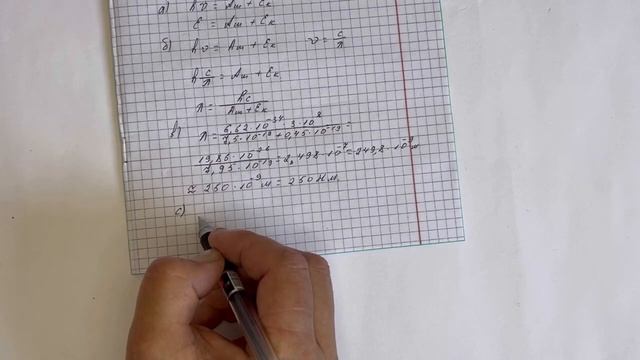 а) hν = Aш + Eк
E = Aш + Eк
б) hν = Aш + Eк ν = c/λ
h c/λ = Aш + Eк
λ = hc/(Aш + Eк)
в) λ = (6,62·10⁻³⁴·3·10⁸)/(7,5·10⁻¹⁹+0,45·10⁻¹⁹) =
(19,86·10⁻²⁶)/(7,95·10⁻¹⁹) = 2,498·10⁻⁷ = 249,8·10⁻⁹ м
≈ 250·10⁻⁹ м = 250 нм.
с)